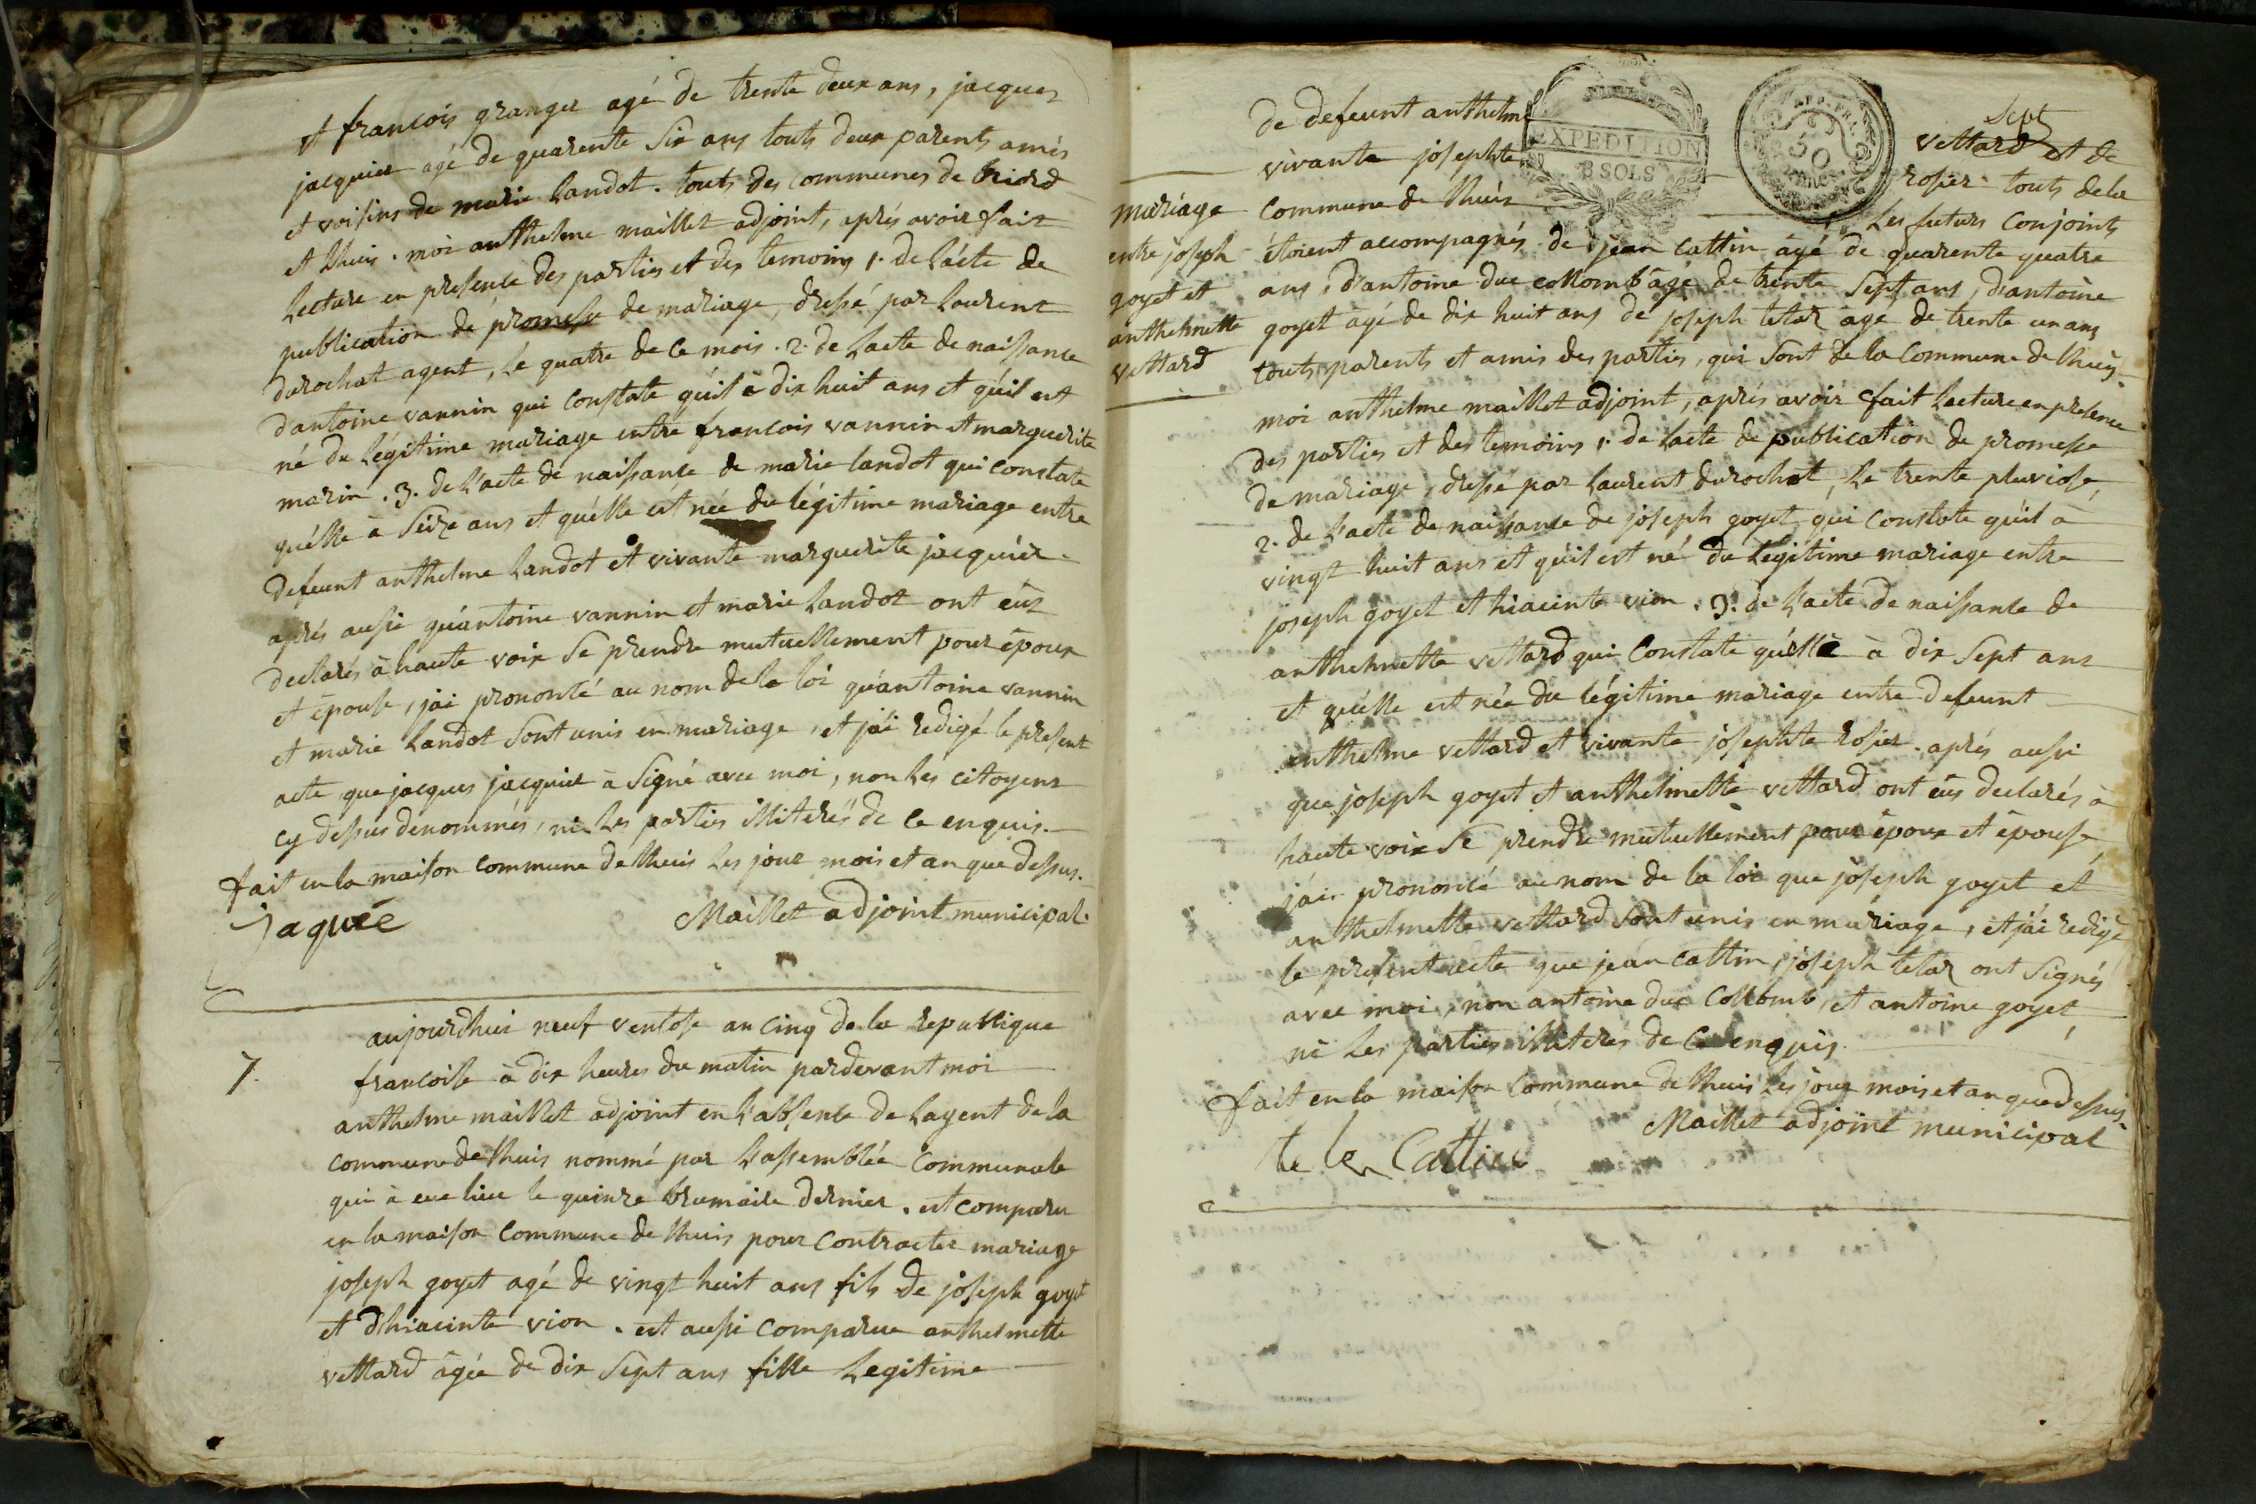 et françois granger agé de trente deux ans, jacques
jacquier agé de quarente six ans touts deux parents amis
et voisins de marie Landot. touts des communes de briord
et Lhuis. moi anthelme maillet adjoint, aprés avoir fait
Lecture en presence des parties et des temoins 1. de Lácte de
publication de promesse de mariage, dressé par Laurent
durochat agent, le quatre de ce mois. 2. de Lacte de naissance
dantoine vannin qui constate qúil à dix huit ans et qúil est
né du Légitime mariage entre françois vannin et marguerite
marin. 3. de L'acte de naissance de marie landot qui constate
qu'élle à Seize ans et qu'élle est née du légitime mariage entre
defeunt anthelme Landot et vivante marguerite jacquier.
aprés aussi qu'antoine vannin et marie Landot ont eûs
declarés à haute voix se prendre mutuellement pour époux
et épouse, jai prononcé au nom de la loi qu'antoine vannin
et marie Landot sont unis en mariage, et jai redigé le present
acte que jacques jacquier à signé avec moi, non les citoyens
cy dessus dénommés, ni les parties illiterés de ce enquis.
fait en la maison commune de Lhuis les jour mois et an que dessus.
Jaquié
Maillet adjoint municipal.
7.
aujourdhui neuf ventose an cinq de la republique
françoise à dix heures du matin pardevant moi
anthelme maillet adjoint en L'absence de Lagent de la
commune de Lhuis nommé par L'assemblée communale
qui à eue lieu le quinze brumaire dernier. est comparu
en la maison commune de Lhuis pour contracter mariage
joseph goyet agé de vingt huit ans fils de joseph goyet
et d'hiacinte vion. est aussi comparue anthelmette
vettard agée de dix sept ans fille Legitime
EXPEDITION
8 SOLS
50
Sept
mariage
entre joseph
goyet et
anthelmette
vettard
de defeunt anthelme vettard et de
vivante josephte rosier. touts de la
commune de Lhuis Les futurs conjoints
étoient accompagnés de jean cattin agé de quarente quatre
ans, d'antoine duc collomb agé de trente Sept ans, d'antoine
goyet agé de dix huit ans de joseph telar age de trente un ans
touts parents et amis des parties, qui sont de la commune de Lhuis.
moi anthelme maillet adjoint, aprés avoir fait Lecture en presence
des parties et des temoins, 1. de Lacte de publication de promesse
de mariage, dressé par Laurent durochat, Le trente pluviose,
2. de L'acte de naissance de joseph goyet qui constate qúil à
vingt huit ans et qúil est né du Legitime mariage entre
joseph goyet et hiacinte vion. 3. de L'acte de naissance de
anthelmette vettard qui constate qu'élle à dix sept ans
et qu'élle est née du légitime mariage entre defeunt
anthelme vettard et vivante josephte rosier. aprés aussi
que joseph goyet et anthelmette vettard ont eûs declarés à
haute voix se prendre mutuellement pour époux et épouse,
j'ai prononcé au nom de la loi que joseph goyet et
anthelmette vettard sont unis en mariage, et j'ai redigé
le present acte que jean cattin, joseph telar ont signés
avec moi, non antoine duc Collomb, et antoine goyet
ni Les parties illiterés de ce enquis.
fait en la maison commune de Lhuis Les jour mois et an que dessus.
Maillet adjoint municipal